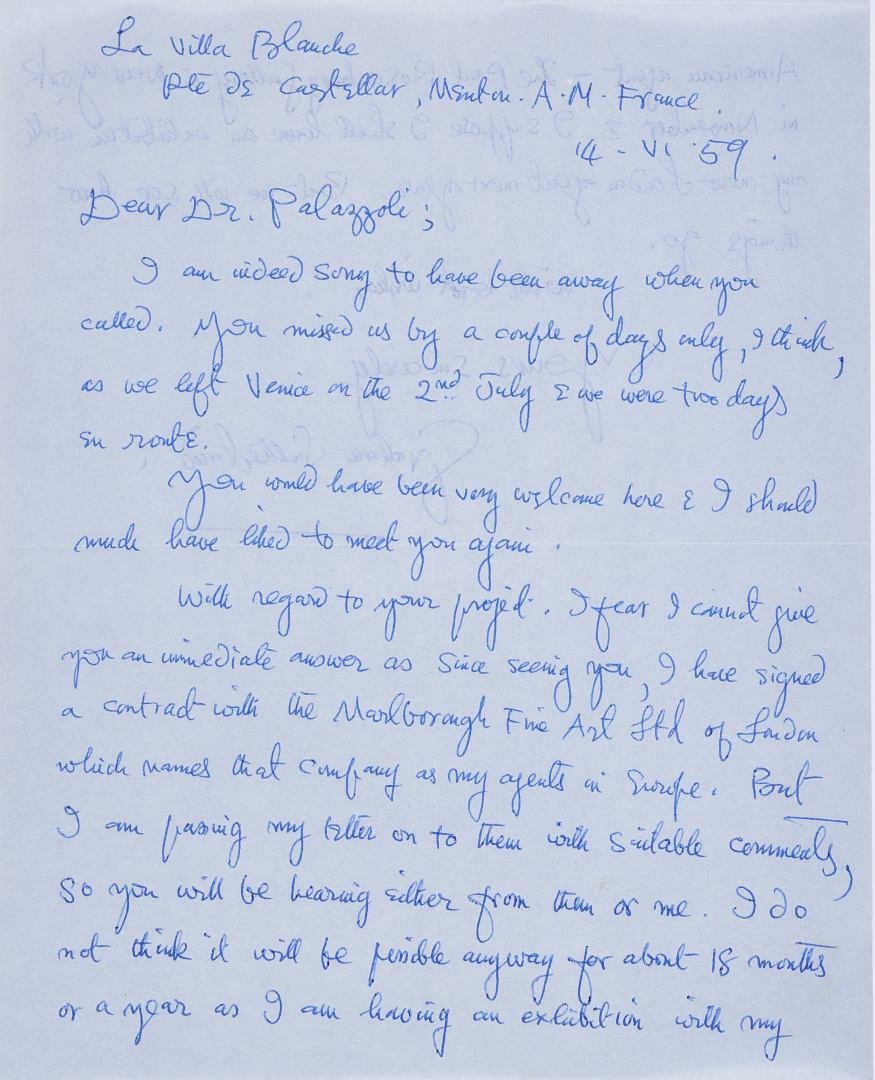 La Villa Blanche
Rte de Castellar, Menton. A.M. France.
14 - VI '59.
Dear Dr. Palazzoli;
I am indeed sorry to have been away when you
called. You missed us by a couple of days only, I think,
as we left Venice on the 2nd July & we were two days
en route.
You would have been very welcome here & I should
much have liked to meet you again.
With regard to your project. I fear I cannot give
you an immediate answer as since seeing you, I have signed
a contract with the Marlborough Fine Art Ltd of London
which names that company as my agents in Europe. But
I am passing my letter on to them with suitable comments,
so you will be hearing either from them or me. I do
not think it will be possible anyway for about 18 months
or a year as I am having an exhibition with my